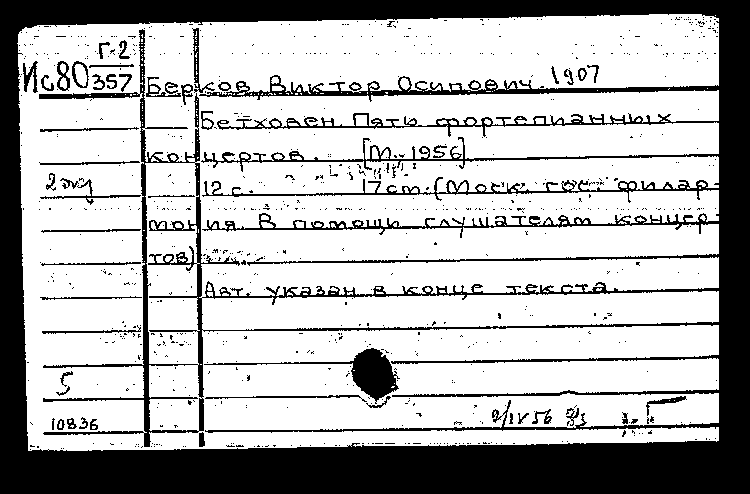 Г-2
Ис80 357
Берков, Виктор Осипович. 1907
Бетховен. Пять фортепианных
концертов. [М., 1956].
2 экз
12 с. 17 см. (Моск. гос. филар-
мония. В помощь слушателям концер-
тов)
Авт. указан в конце текста.
5
10836
9/IV 56